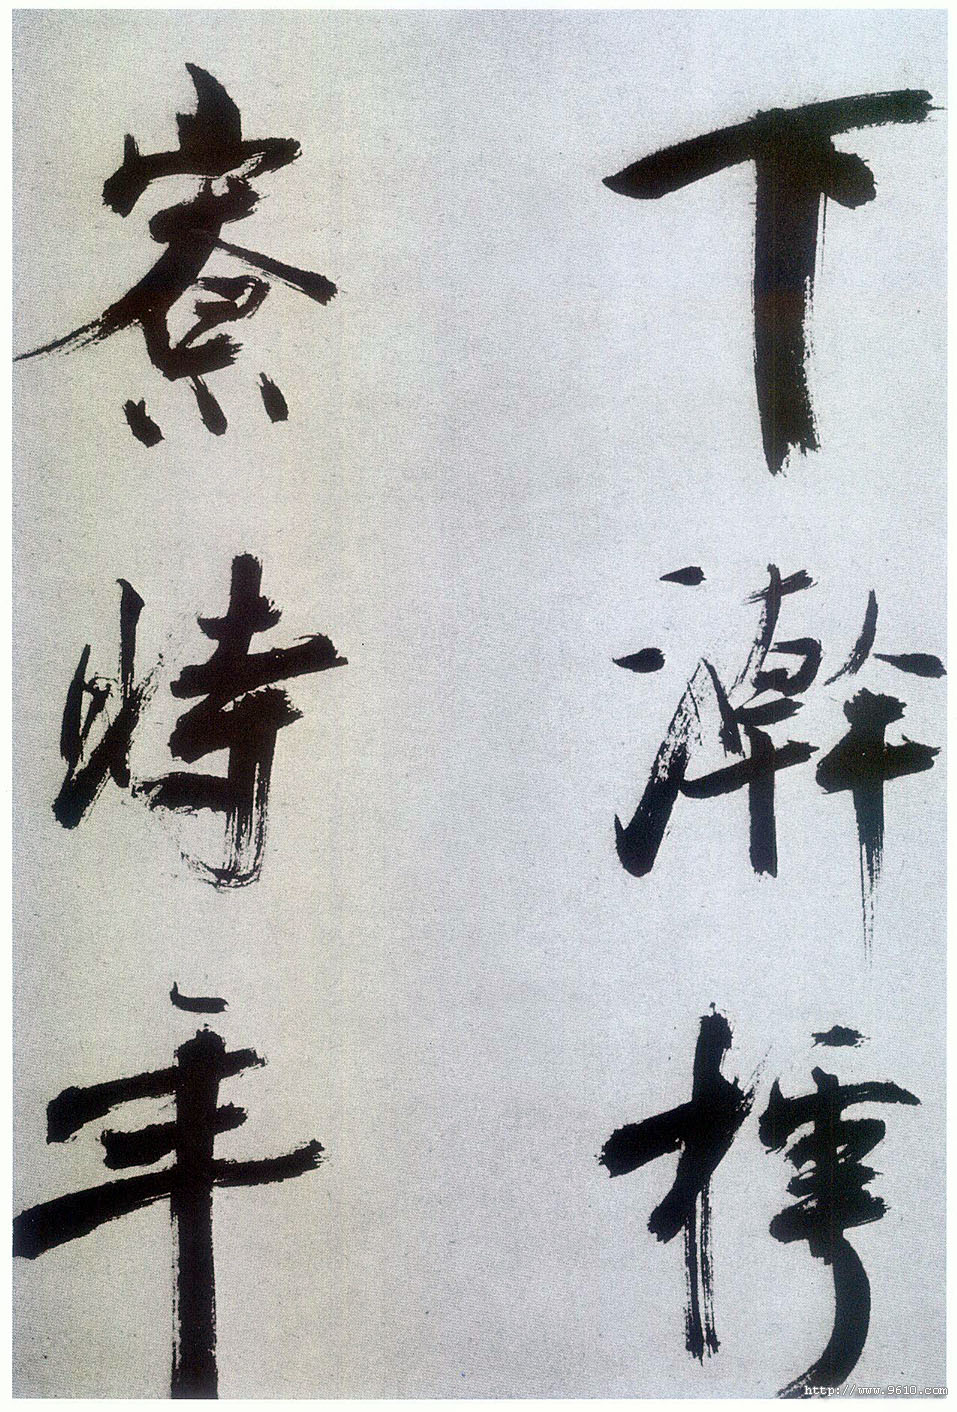 下澣樗
寮時年
http://www.9610.com